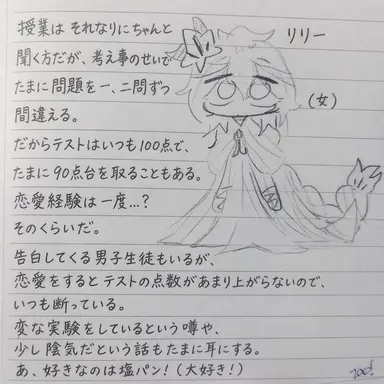 授業は それなりにちゃんと
聞く方だが、考え事のせいで
たまに問題を一、二問ずつ
間違える。
だからテストはいつも100点で、
たまに90点台を取ることもある。
恋愛経験は一度…?
そのくらいだ。
告白してくる男子生徒もいるが、
恋愛をするとテストの点数があまり上がらないので、
いつも断っている。
変な実験をしているという噂や、
少し陰気だという話もたまに耳にする。
あ、好きなのは塩パン!(大好き!)
リリー
(女)